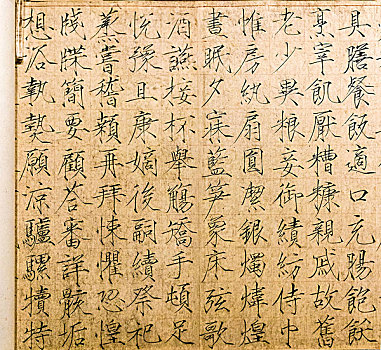 具膳餐飯適口充腸飽飫
烹宰飢厭糟糠親戚故舊
老少異粮妾御績紡侍巾
惟房紈扇圓潔銀燭煒煌
晝眠夕寐藍笋象床弦歌
酒讌接杯舉觴矯手頓足
悅豫且康嫡後嗣續祭祀
蒸嘗稽顙再拜悚懼恐惶
牋牒簡要顧荅審詳骸垢
想浴執熱願涼驢騾犢特